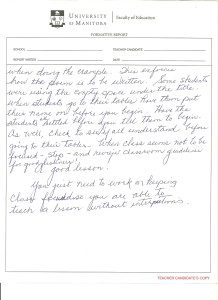 UNIVERSITY
OF MANITOBA
Faculty of Education
FORMATIVE REPORT
SCHOOL
TEACHER CANDIDATE
REPORT NOTES
DATE
when doing the example. This enforces
how the poem is to be written. Some students
were using the empty space under the title.
When students go to their tables have them put
their name on before you begin. Have the
students settled before you tell them to begin.
As well, check to see if all understand before
going to their tables. When class seems not to be
focused - stop - and review classroom guidelines
for good listening.
A good lesson.
You just need to work on keeping
class focused so you are able to
teach a lesson without interruptions.
TEACHER CANDIDATE'S COPY